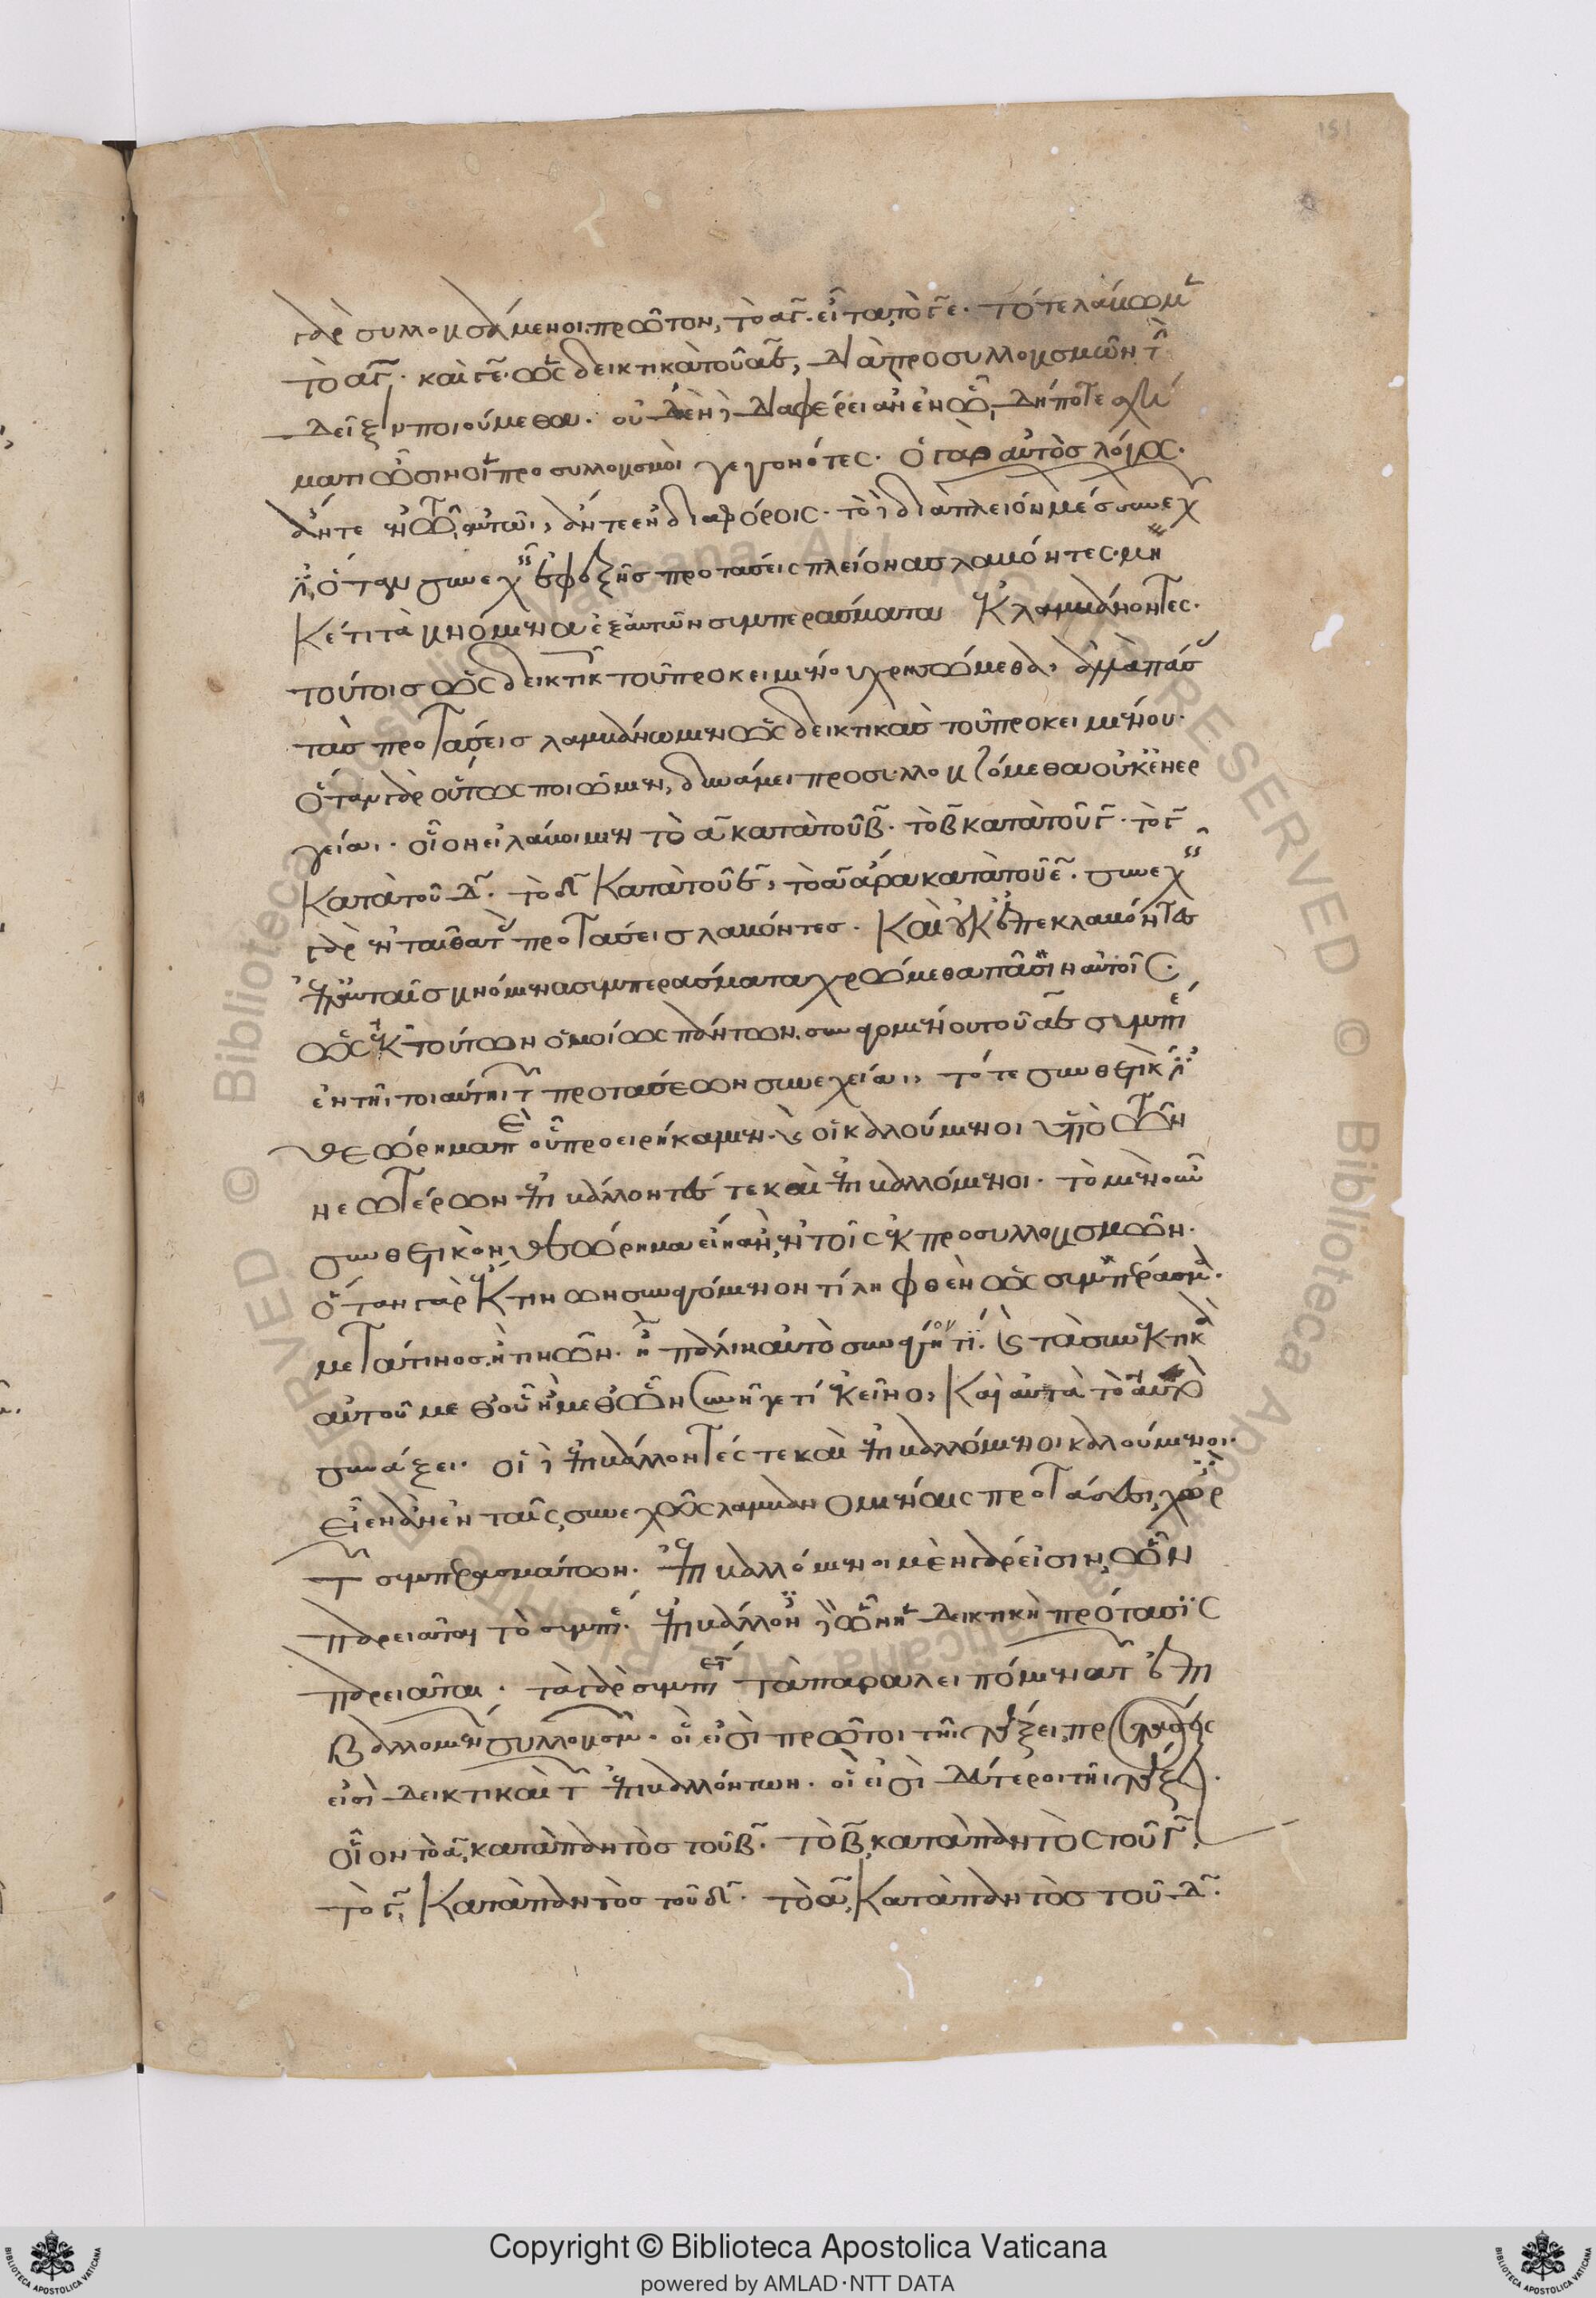 151
γὰρ συλλογισάμενοι πρῶτον, τὸ αγ. εἶτα τὸ γε. τότε λάβωμ
τὸ αγ. καὶ γε. ὡς δεικτικὰ τοῦ αε, διὰ προσυλλογισμῶν τ
δεῖξιν ποιούμεθα. οὐδὲν δὲ διαφέρει ἂν ἐν ᾧ δήποτε σχή
ματι ὦσιν οἱ προσυλλογισμοὶ γεγονότες. ὁ γὰρ αὐτὸς λόγος.
ἄν τε ἐν τῷ αὐτῶι, ἄν τε ἐν διαφόροις. τὸ δὲ διὰ πλειόν μέσ συνεχ
ὅταν συνεχ ἐφεξῆς προτάσεις πλείονας λαβόντες. μη
κέτι τὰ γινόμενα ἐξ αὐτῶν συμπεράσματα ἐκλαμβάνοντες.
τούτοις ὡς δεικτικ τοῦ προκειμένου χρησώμεθα, ἀλλὰ πάσ
τὰς προτάσεις λαμβάνωμεν ὡς δεικτικὰς τοῦ προκειμένου.
ὅταν γὰρ οὕτως ποιῶμεν, δυνάμει προσυλλογιζόμεθα οὐκ ἐνερ
γείαι. οἷον εἰ λάβοιμεν τὸ α κατὰ τοῦ β. τὸ β κατὰ τοῦ γ. τὸ γ
κατὰ τοῦ δ. τὸ δ κατὰ τοῦ ε, τὸ α ἄρα κατὰ τοῦ ε. συνεχ
γὰρ ἐνταῦθα τ προτάσεις λαβόντες. καὶ οὐκέτι ἐκλαβόντες
ἐν αὐταῖς γινόμενα συμπεράσματα χρώμεθα πᾶσιν αὐτοῖς.
ὡς ἐκ τούτων ὁμοίως πάντων. συναγομένου τοῦ αε συμπ
ἐν τῆι τοιαύτηι τ προτάσεων συνεχείαι, τό τε συνθετικ
θεώρημα περὶ οὗ προειρήκαμεν. καὶ οἱ καλούμενοι ὑπὸ τῶν
νεωτέρων ἐπιβάλλοντές τε καὶ ἐπιβαλλόμενοι. τὸ μὲν οὖν
συνθετικὸν θεώρημα εἴη ἂν ἐν τοῖς ἐκ προσυλλογισμῶν.
ὅταν γὰρ ἔκ τινων συναγόμενόν τι ληφθὲν ὡς συμπέρασμ.
μετά τινος ἢ τινῶν. πάλιν αὐτὸ συναγάγηι τι. καὶ τὰ συνακτικὰ
αὐτοῦ μεθ' οὗ ἢ μεθ' ὧν συνῆγέ τι ἐκεῖνο, καὶ αὐτὰ τὸ αὐτὸ
συνάξει. οἱ δὲ ἐπιβάλλοντές τε καὶ ἐπιβαλλόμενοι καλούμενοι.
εἶεν ἂν ἐν ταῖς συνεχῶς λαμβανομέναις προτάσεσι χωρ
τ συμπερασμάτων. ἐπιβαλλόμενοι μὲν γάρ εἰσιν, ὧν
παρειᾶται τὸ συμπ. ἐπιβάλλον δὲ ὧν ἡ δεικτικὴ πρότασις
παρειᾶται. τὰ γὰρ συμπ τὰ παραλειπόμενα τ ἐπι
βαλλομέν συλλογισμ. οἵ εἰσι πρῶτοι τῆι τάξει, προτάσεις
εἰσὶ δεικτικαὶ τ ἐπιβαλλόντων. οἵ εἰσι δεύτεροι τῆι τάξει.
οἷον τὸ α, κατὰ παντὸς τοῦ β. τὸ β, κατὰ παντὸς τοῦ γ.
τὸ γ, κατὰ παντὸς τοῦ δ. τὸ α, κατὰ παντὸς τοῦ δ.
Copyright © Biblioteca Apostolica Vaticana
powered by AMLAD·NTT DATA